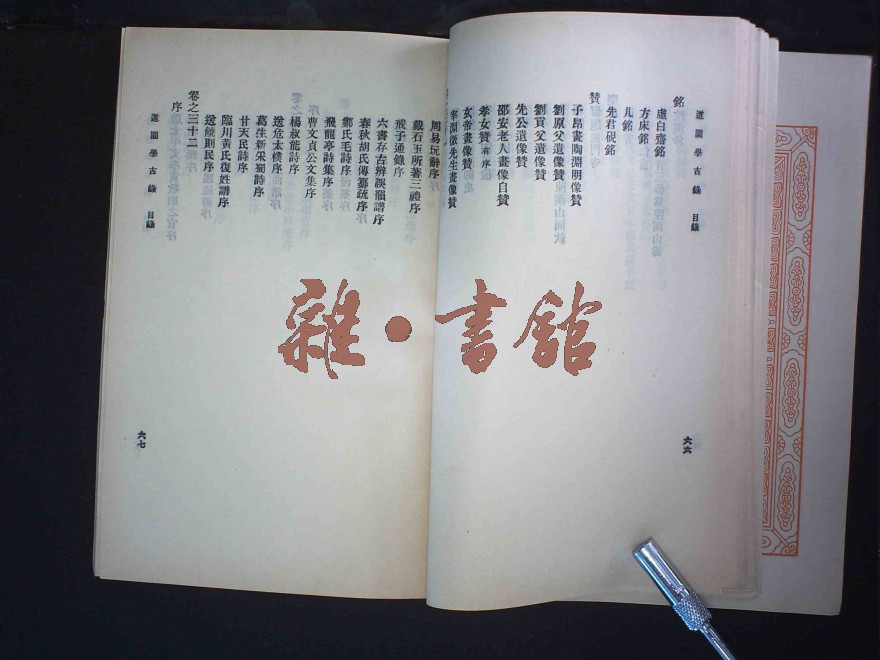 道園學古錄 目錄
銘
虛白齋銘
方床銘
几銘
先君硯銘
贊
子昂畫陶淵明像贊
劉原父遺像贊
劉貢父遺像贊
先公遺像贊
邵安老人畫像自贊
孝女贊有序
玄帝畫像贊
李淵微先生畫像贊
六六
周易玩辭序
戴石玉所著三禮序
戒子通錄序
六書存古辨誤韻譜序
春秋胡氏傳纂疏序
鄭氏毛詩序
飛龍亭詩集序
曹文貞公文集序
楊叔能詩序
送危太樸序
葛生新采蜀詩序
甘天民詩序
臨川黃氏復姓譜序
送饒則民序
卷之三十二
序
道園學古錄 目錄
六七
雜·書館